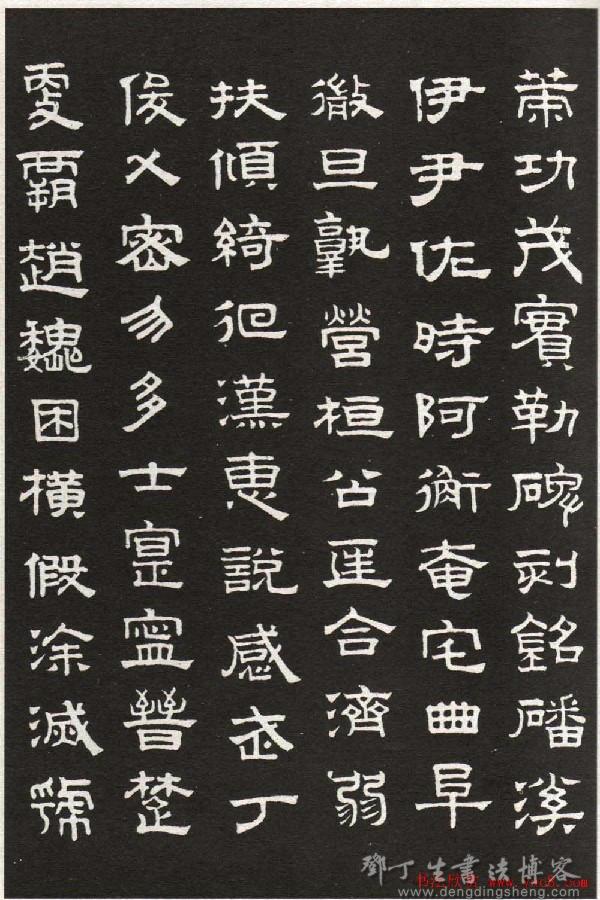 策功茂實勒碑刻銘磻溪
伊尹佐時阿衡奄宅曲阜
微旦孰營桓公匡合濟弱
扶傾綺佪漢惠說感武丁
俊乂密勿多士寔寧晉楚
更霸趙魏困橫假涂滅虢
鄧丁生書法博客
www.dengdingsheng.com